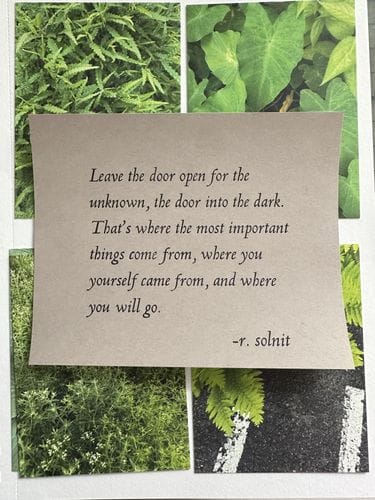 Leave the door open for the
unknown, the door into the dark.
That's where the most important
things come from, where you
yourself came from, and where
you will go.
-r. solnit